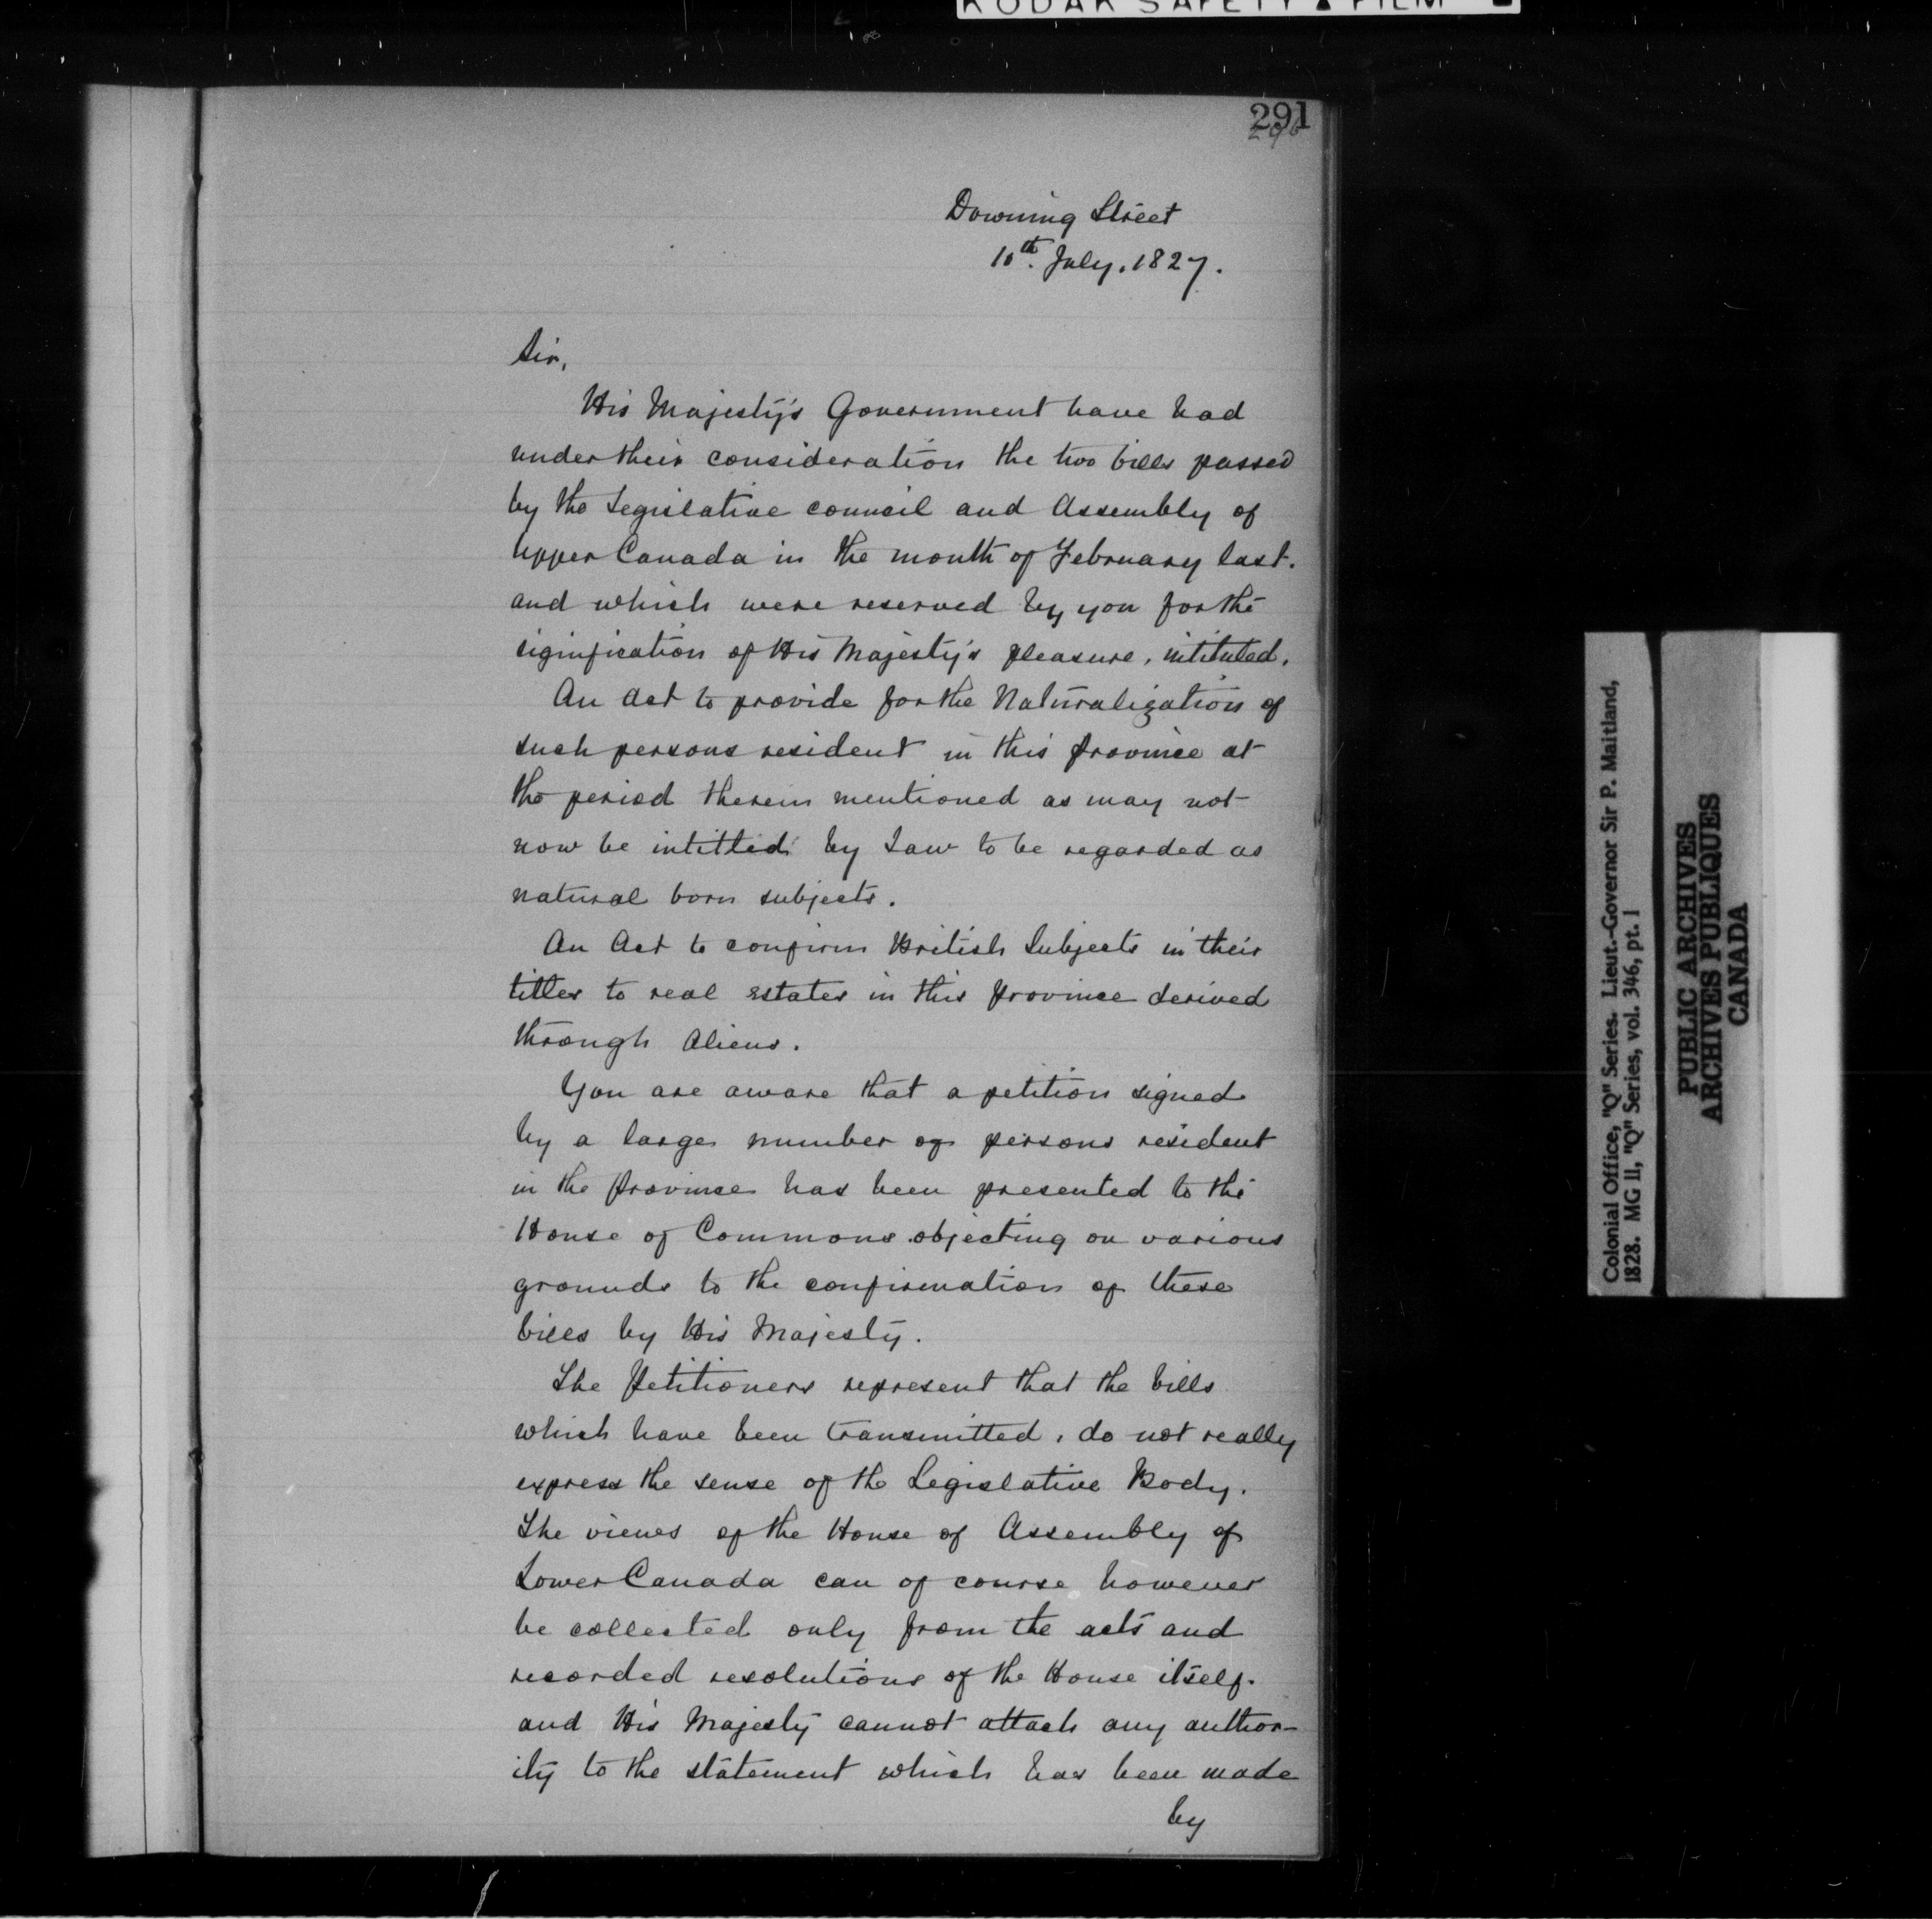 KODAK SAFETY ▲ FILM
291
296
Downing Street
10th. July. 1827.
Sir,
His Majesty's Government have had
under their consideration the two bills passed
by the Legislative council and Assembly of
Upper Canada in the month of February last.
and which were reserved by you for the
signification of His Majesty's pleasure, intituted,
An Act to provide for the Naturalization of
such persons resident in this province at
the period therein mentioned as may not
now be intitled by Law to be regarded as
natural born subjects.
An Act to confirm British Subjects in their
titles to real Estates in this province derived
through Aliens.
You are aware that a petition signed
by a large number of persons resident
in the province has been presented to the
House of Commons objecting on various
grounds to the confirmation of these
bills by His Majesty.
The Petitioners represent that the bills
which have been transmitted, do not really
express the sense of the Legislative Body.
The views of the House of Assembly of
Lower Canada can of course however
be collected only from the acts and
recorded resolutions of the House itself.
and His Majesty cannot attach any author-
ity to the statement which has been made
by
Colonial Office, "Q" Series. Lieut.-Governor Sir P. Maitland,
1828. MG 11, "Q" Series, vol. 346, pt. 1
PUBLIC ARCHIVES
ARCHIVES PUBLIQUES
CANADA